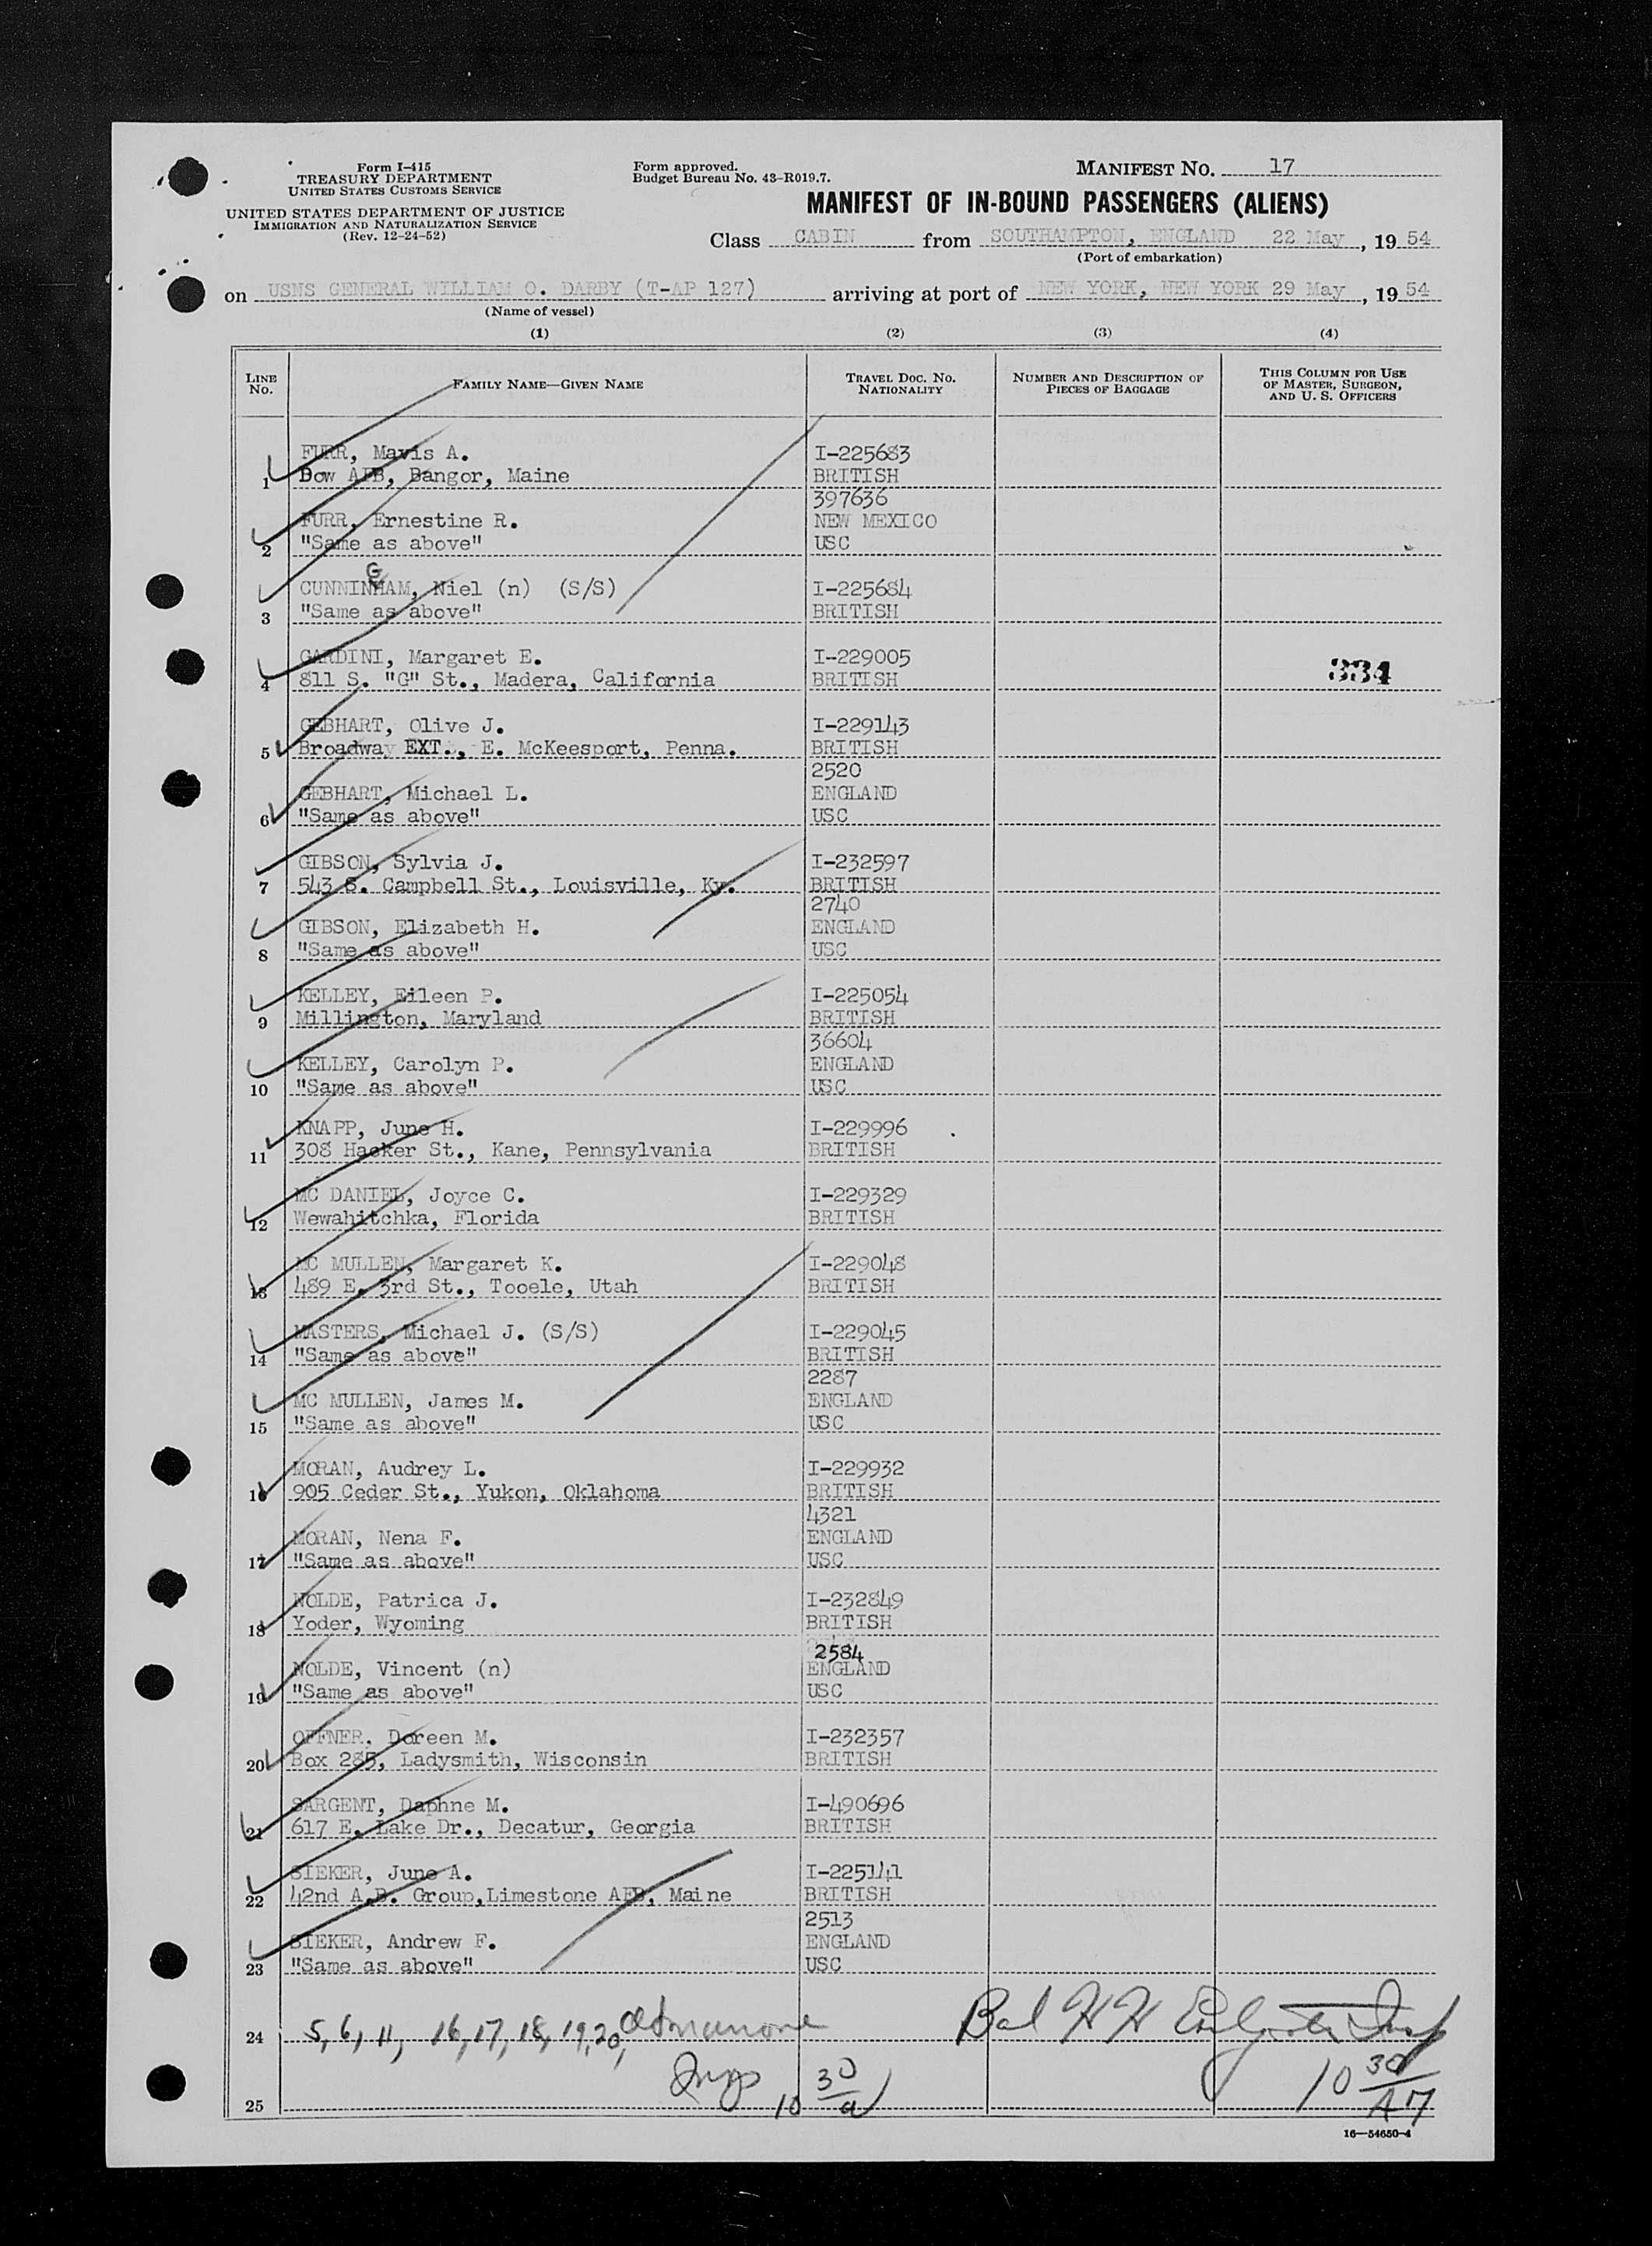 Form I-415
TREASURY DEPARTMENT
UNITED STATES CUSTOMS SERVICE
UNITED STATES DEPARTMENT OF JUSTICE
IMMIGRATION AND NATURALIZATION SERVICE
(Rev. 12-24-52)
Form approved.
Budget Bureau No. 43-R019.7.
MANIFEST NO. 17
MANIFEST OF IN-BOUND PASSENGERS (ALIENS)
Class CABIN from SOUTHAMPTON, ENGLAND 22 May, 19 54
(Port of embarkation)
on USNS GENERAL WILLIAM O. DARBY (T-AP 127) arriving at port of NEW YORK, NEW YORK 29 May, 19 54
(Name of vessel)
(1) (2) (3) (4)
LINE NO. FAMILY NAME—GIVEN NAME TRAVEL DOC. NO. NATIONALITY NUMBER AND DESCRIPTION OF PIECES OF BAGGAGE THIS COLUMN FOR USE OF MASTER, SURGEON, AND U. S. OFFICERS
FURR, Mavis A. I-225683
1 Dow AFB, Bangor, Maine BRITISH
397636
FURR, Ernestine R. NEW MEXICO
2 "Same as above" USC
G
CUNNINHAM, Niel (n) (S/S) I-225684
3 "Same as above" BRITISH
GARDINI, Margaret E. I-229005
4 811 S. "G" St., Madera, California BRITISH 334
GEBHART, Olive J. I-229143
5 Broadway EXT., E. McKeesport, Penna. BRITISH
2520
GEBHART, Michael L. ENGLAND
6 "Same as above" USC
GIBSON, Sylvia J. I-232597
7 543 S. Campbell St., Louisville, Ky. BRITISH
2740
GIBSON, Elizabeth H. ENGLAND
8 "Same as above" USC
KELLEY, Eileen P. I-225054
9 Millington, Maryland BRITISH
36604
KELLEY, Carolyn P. ENGLAND
10 "Same as above" USC
KNAPP, June H. I-229996
11 308 Hacker St., Kane, Pennsylvania BRITISH
MC DANIEL, Joyce C. I-229329
12 Wewahitchka, Florida BRITISH
MC MULLEN, Margaret K. I-229048
13 489 E. 3rd St., Tooele, Utah BRITISH
MASTERS, Michael J. (S/S) I-229045
14 "Same as above" BRITISH
2287
MC MULLEN, James M. ENGLAND
15 "Same as above" USC
MORAN, Audrey L. I-229932
16 905 Ceder St., Yukon, Oklahoma BRITISH
4321
MORAN, Nena F. ENGLAND
17 "Same as above" USC
NOLDE, Patrica J. I-232849
18 Yoder, Wyoming BRITISH
2584
NOLDE, Vincent (n) ENGLAND
19 "Same as above" USC
OFFNER, Doreen M. I-232357
20 Box 285, Ladysmith, Wisconsin BRITISH
SARGENT, Daphne M. I-490696
21 617 E. Lake Dr., Decatur, Georgia BRITISH
SIEKER, June A. I-225141
22 42nd A.B. Group, Limestone AFB, Maine BRITISH
2513
SIEKER, Andrew F. ENGLAND
23 "Same as above" USC
24 5, 6, 11, 16, 17, 18, 19, 20, Bal H H
10 30 a 10 30 AM
25
16—54650-4